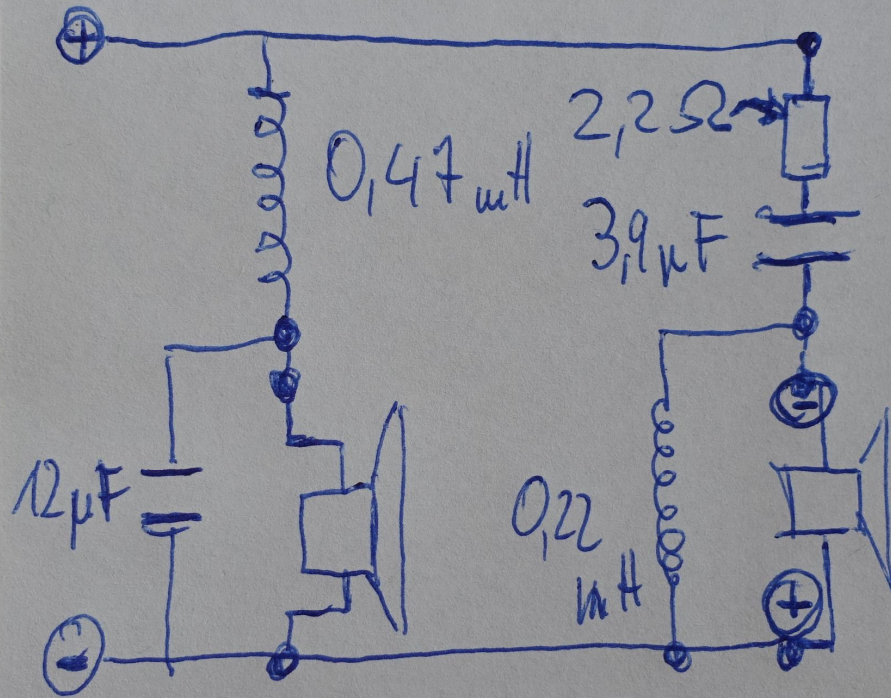 +
2,2Ω
0,47 mH
3,9 µF
-
12 µF
0,22
mH
+
-